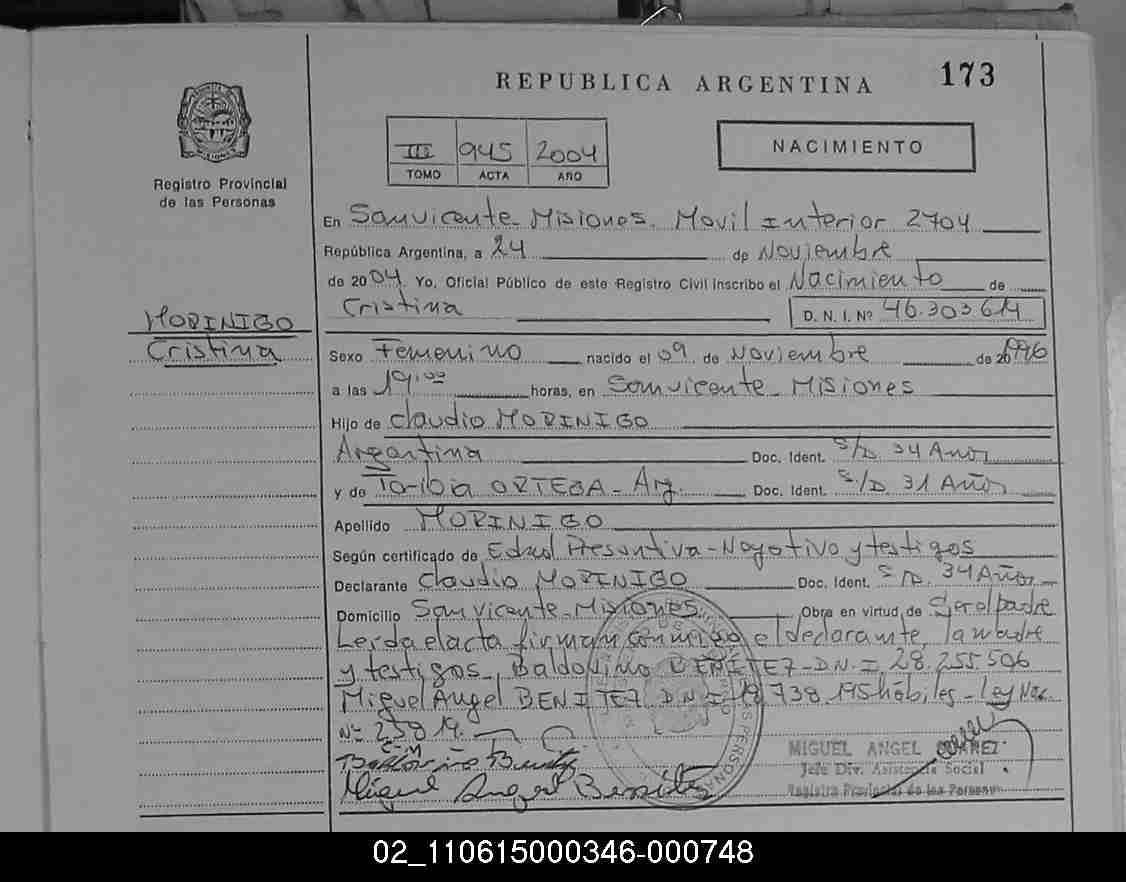 REPUBLICA ARGENTINA 173
III 945 2004
TOMO ACTA AÑO
NACIMIENTO
MISIONES
Registro Provincial
de las Personas
En San vicente Misiones. Movil Interior 2704
República Argentina, a 24 de Noviembre
de 2004. Yo, Oficial Público de este Registro Civil inscribo el Nacimiento de
Cristina D. N. I. Nº 46.303.614
MORINIGO
Cristina
Sexo Femenino nacido el 09 de Noviembre de 20 1996
a las 19:00 horas, en San vicente Misiones
Hijo de Claudio MORINIGO
Argentina Doc. Ident. S/D. 34 Años
y de Toribia ORTEGA - Arg. Doc. Ident. S/D. 31 Años
Apellido MORINIGO
Según certificado de Edad Presuntiva - Negativo y testigos
Declarante Claudio MORINIGO Doc. Ident. S/D. 34 Años
Domicilio San vicente Misiones Obra en virtud de Ser el padre
Leida el acta firman conmigo el declarante, la madre
y testigos, Baldovino BENITEZ - D.N.I. 28.255.506
Miguel Angel BENITEZ D.N.I. 18.738.195 hábiles - Ley Nac.
Nº 25819.
Miguel Angel Benitez
MIGUEL ANGEL
Jefe Div. Asistencia Social
Registro Provincial de las Personas
02_110615000346-000748